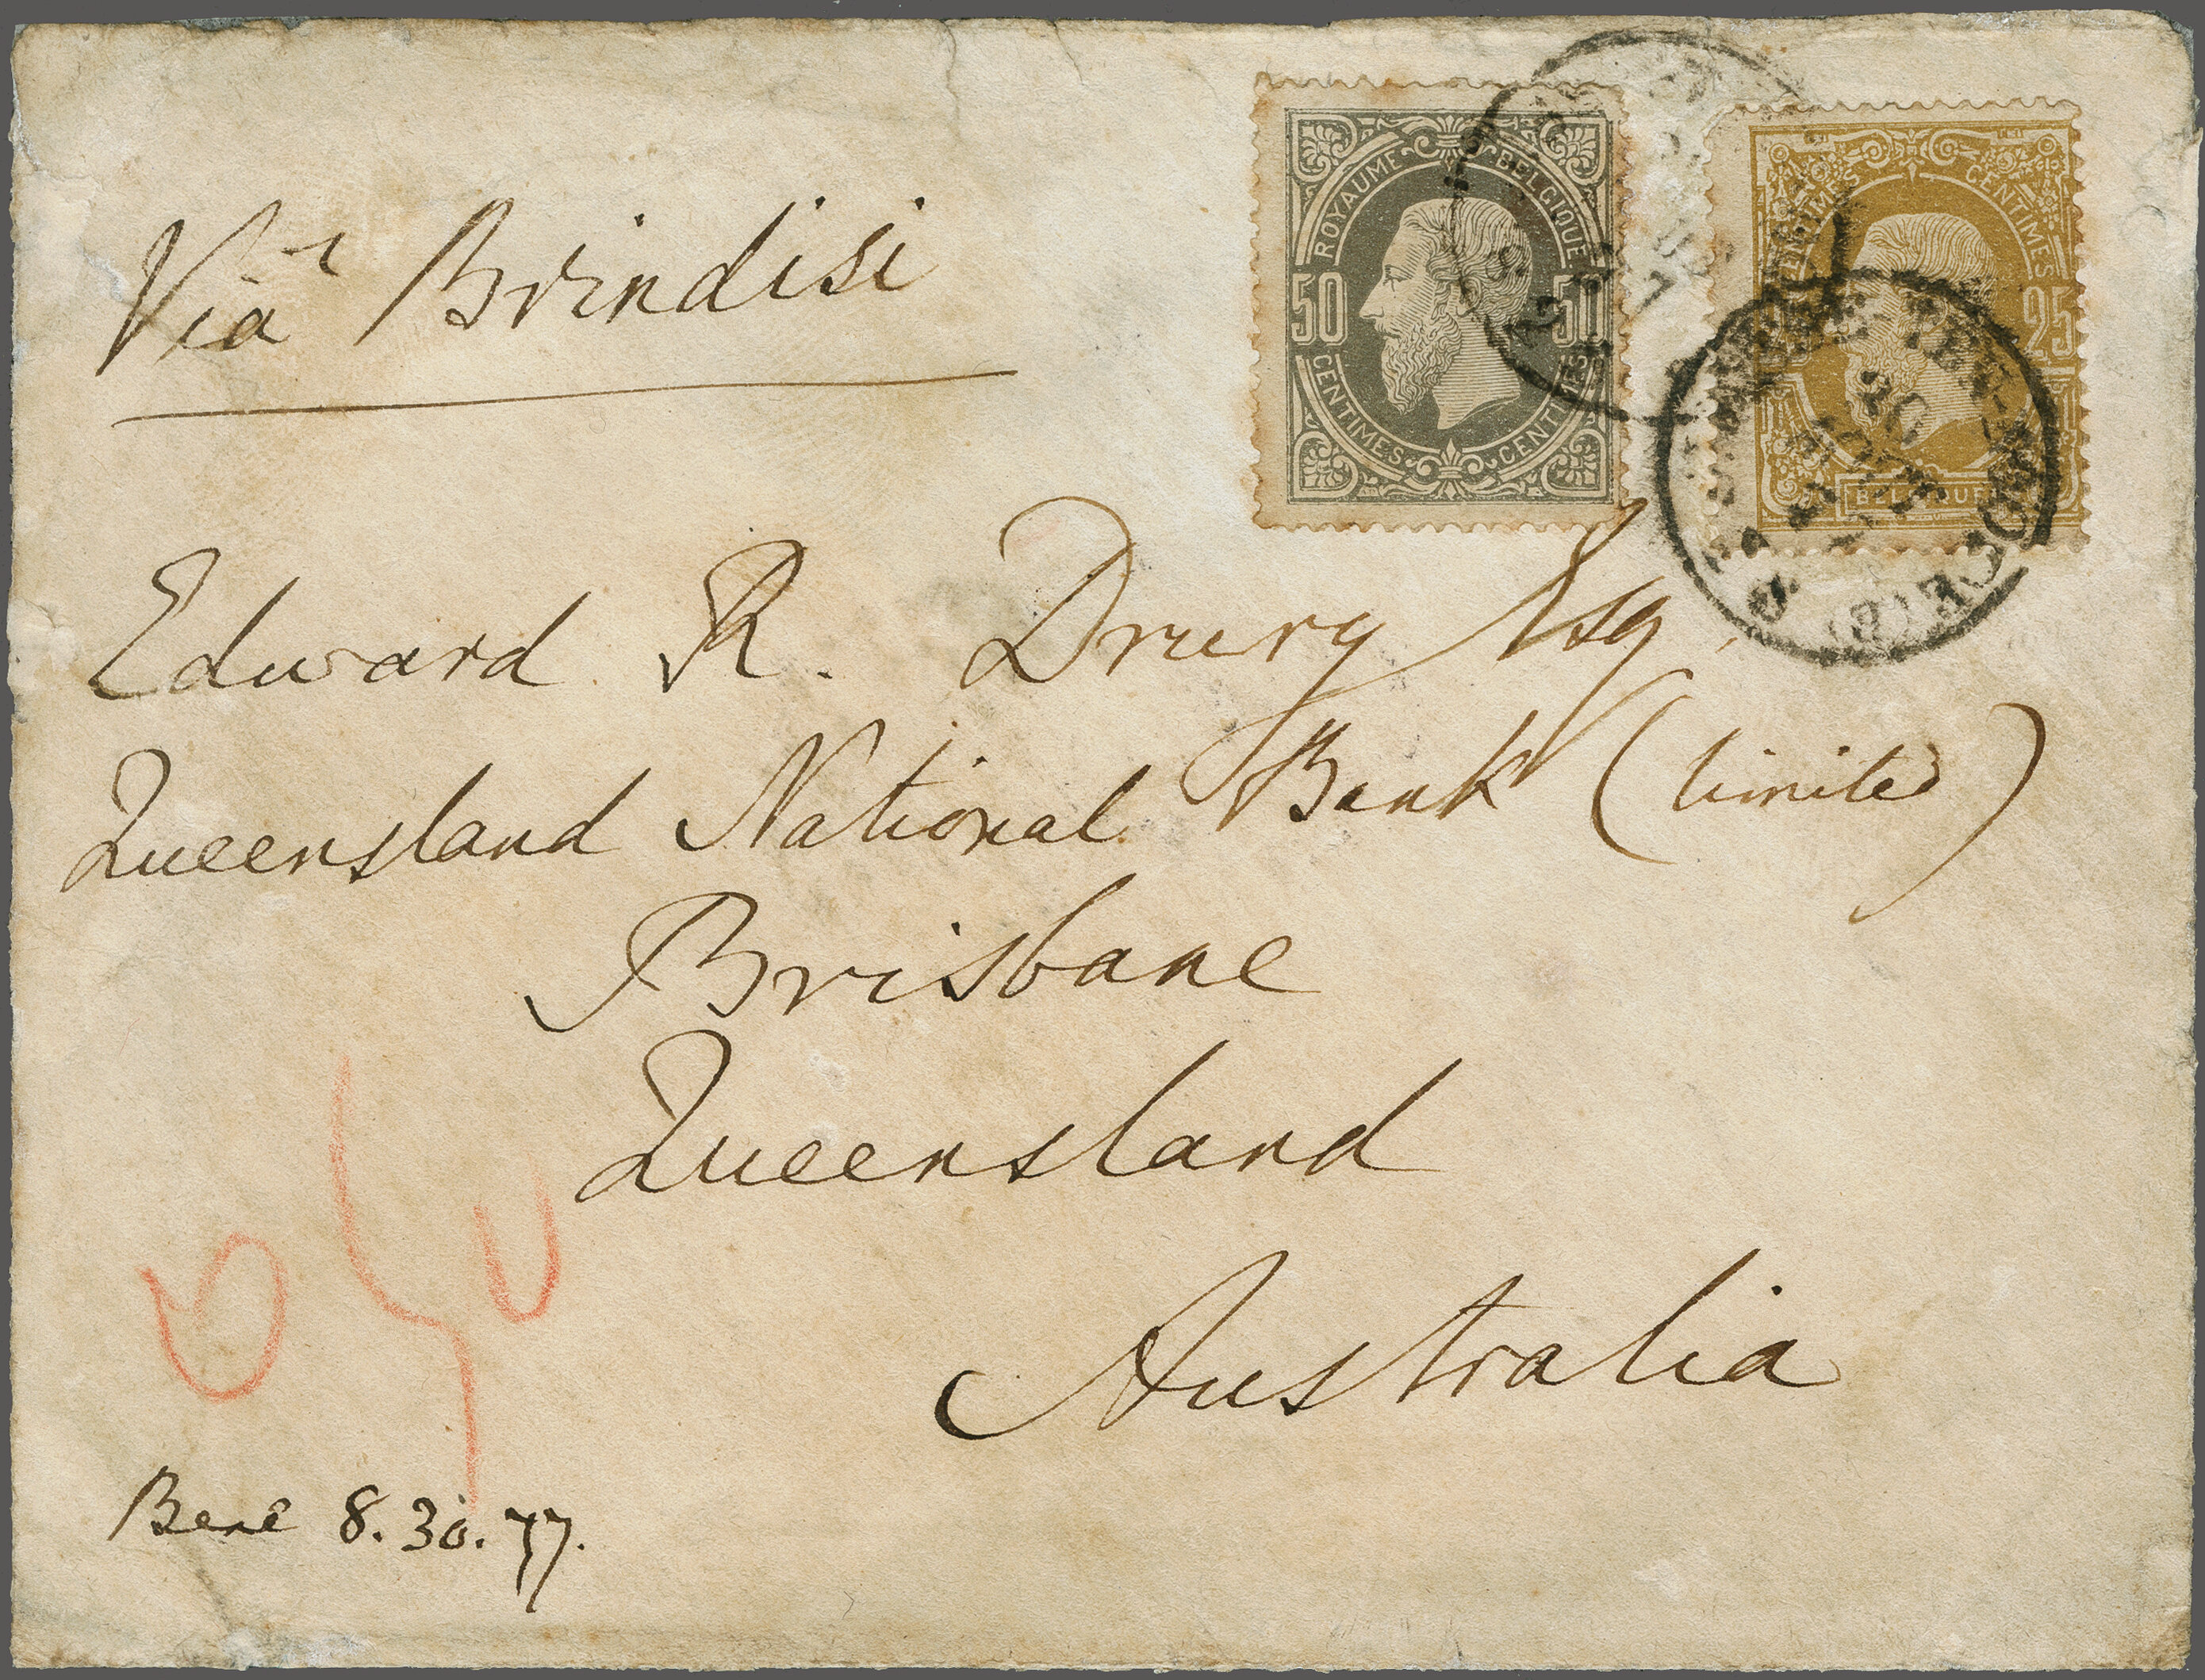 Via Brindisi
ROYAUME BELGIQUE
50 50
CENTIMES CENTIMES
CENTIMES CENTIMES
25
BELGIQUE
Edward R. Drury Esq.
Queensland National Bank (limited)
Brisbane
Queensland
Australia
8.30.77.